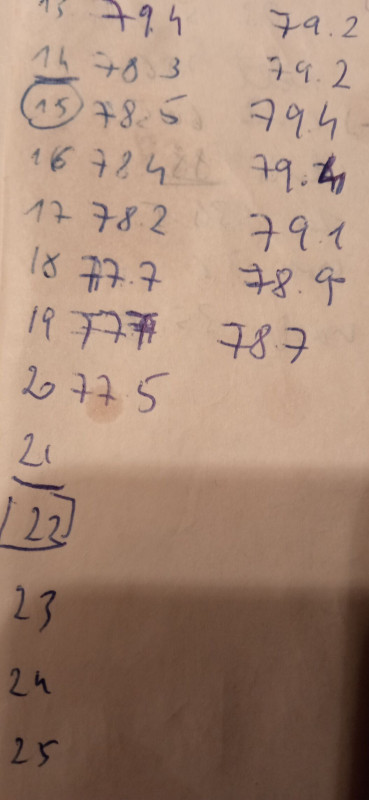 13 79.4 79.2
14 78.3 79.2
15 78.5 79.4
16 78.4 79.4
17 78.2 79.1
18 77.7 78.9
19 77.7 78.7
20 77.5
21
22
23
24
25